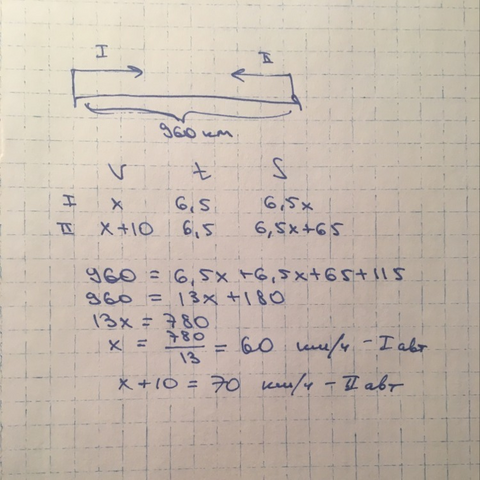 I II
960 км
V t S
I x 6,5 6,5x
II x+10 6,5 6,5x+65
960 = 6,5x+6,5x+65+115
960 = 13x+180
13x = 780
x = 780/13 = 60 км/ч - I авт
x+10 = 70 км/ч - II авт